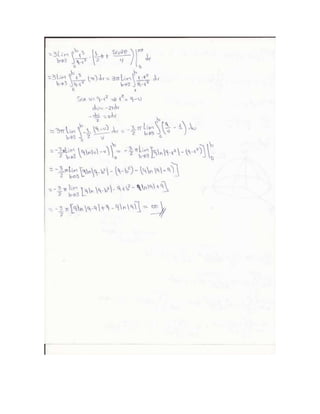 = 3 lim b→3 ∫₀ᵇ r³/(9-r²) (½θ + sen2θ/4)|₀^2π dr
= 3 lim b→3 ∫₀ᵇ r³/(9-r²) (π) dr = 3π lim b→3 ∫₀ᵇ r·r²/(9-r²) dr
Sea u = 9-r² ⇒ r² = 9-u
du = -2rdr
-du/2 = rdr
= 3π lim b→3 ∫₀ᵇ -½ (9-u)/u du = -3/2 π lim b→3 ∫₀ᵇ (9/u - 1) du
= -3/2 π lim b→3 (9ln|u| - u)|₀ᵇ = -3/2 π lim b→3 [9ln|9-r²| - (9-r²)]|₀ᵇ
= -3/2 π lim b→3 [9ln|9-b²| - (9-b²) - (9ln|9| - 9)]
= -3/2 π lim b→3 [9ln|9-b²| - 9 + b² - 9ln|9| + 9]
= -3/2 π [9ln|9-9| + 9 - 9ln|9|] = ∞